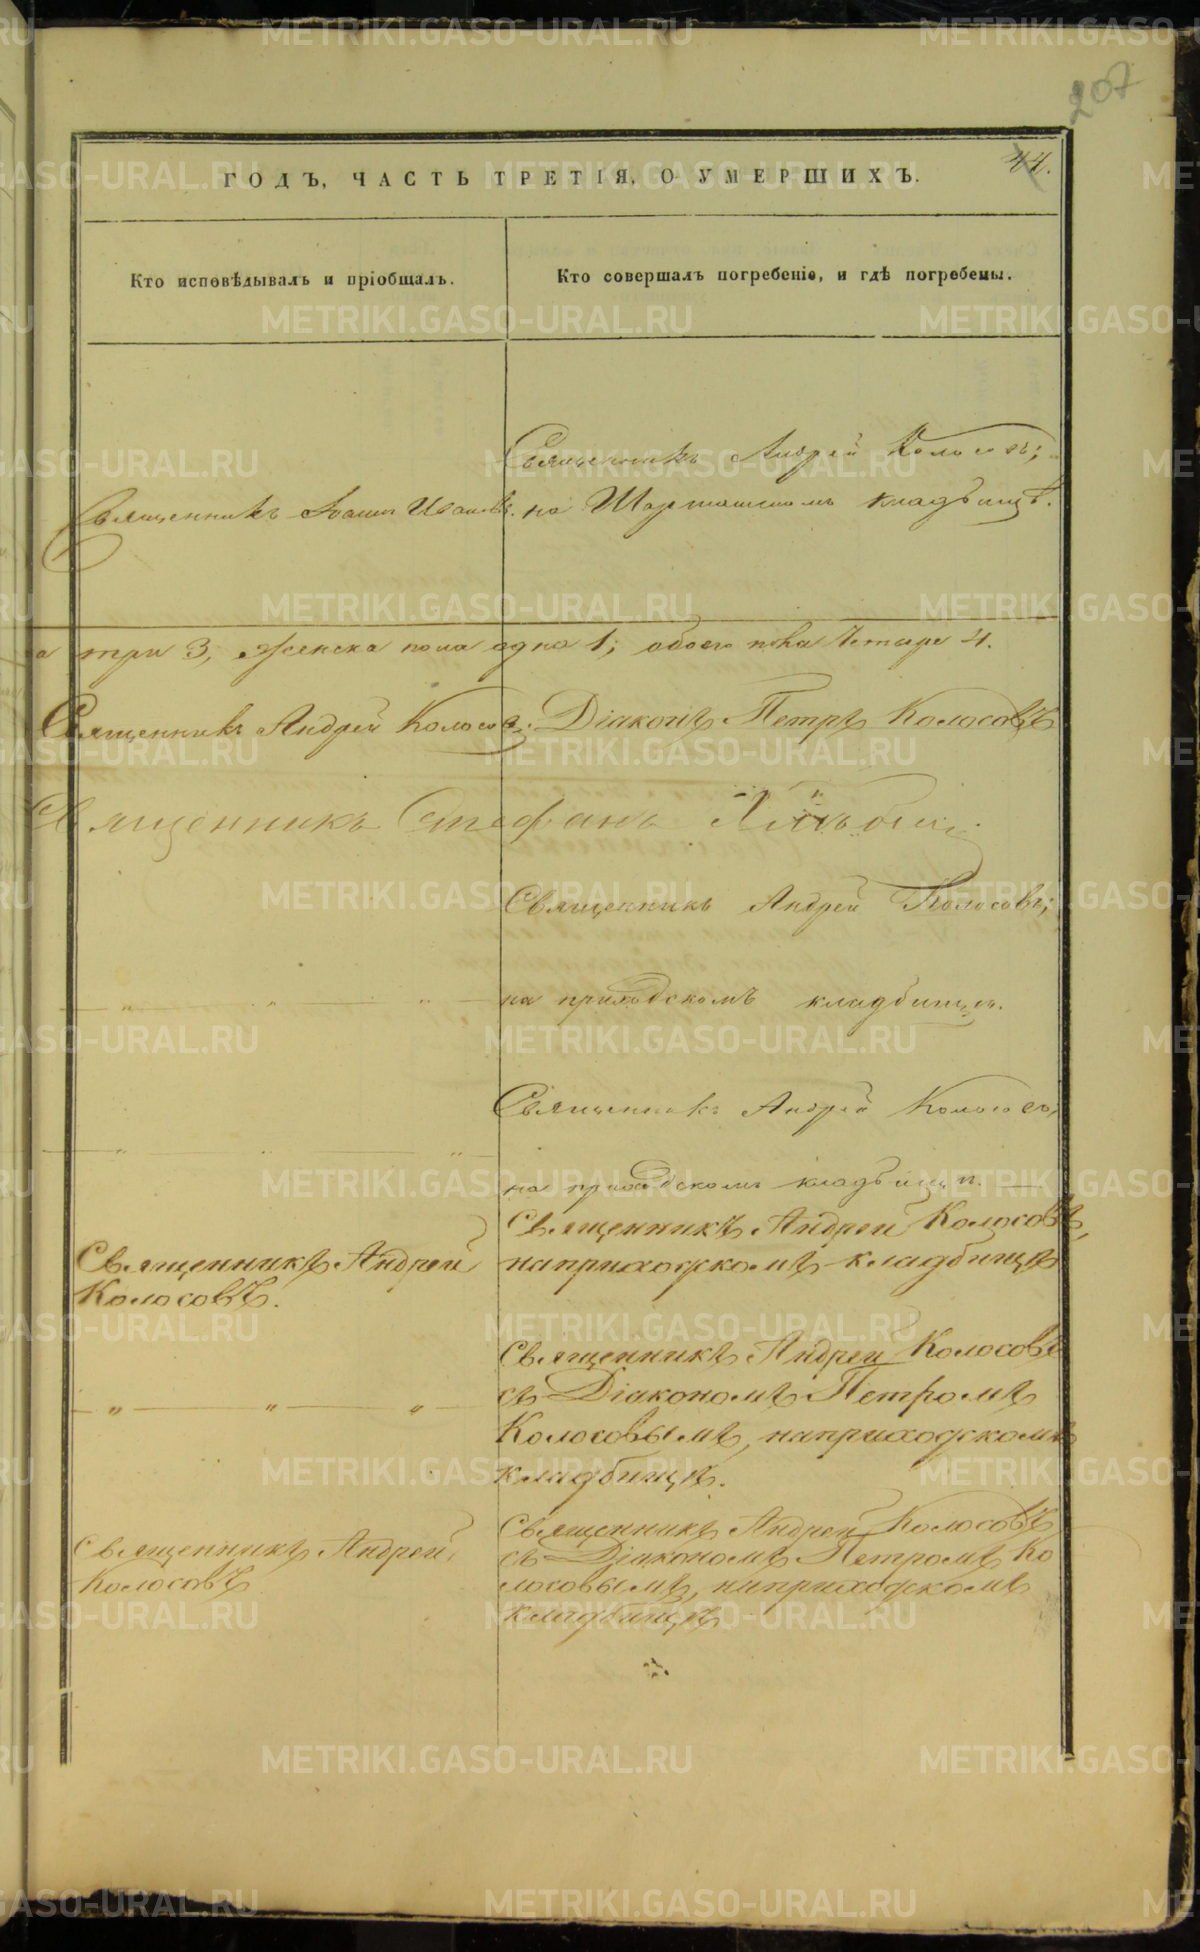 207
44.
ГОДЪ, ЧАСТЬ ТРЕТІЯ, О УМЕРШИХЪ.
Кто исповѣдывалъ и пріобщалъ.
Кто совершалъ погребеніе, и гдѣ погребены.
Священникъ Андрей Колосовъ;
Священникъ Іоаннъ Ивановъ.
на Шарташскомъ кладбищѣ.
а три 3, женска пола одна 1; обоего пола четыре 4.
Священникъ Андрей Колосовъ. Діаконъ Петръ Колосовъ
Священникъ Стефанъ
Священникъ Андрей Колосовъ;
на приходскомъ кладбищѣ.
Священникъ Андрей Колосовъ,
на приходскомъ кладбищѣ.
Священникъ Андрей Колосовъ,
на приходскомъ кладбищѣ
Священникъ Андрей
Колосовъ.
Священникъ Андрей Колосовъ
съ Діакономъ Петромъ
Колосовымъ, на приходскомъ
кладбищѣ.
Священникъ Андрей
Колосовъ
Священникъ Андрей Колосовъ
съ Діакономъ Петромъ Ко
лосовымъ, на приходскомъ
кладбищѣ
METRIKI.GASO-URAL.RU